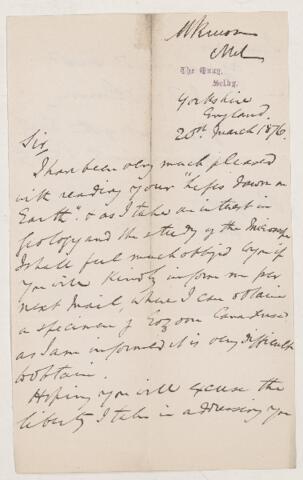 Ml
The Quay,
Selby.
Yorkshire
England.
20th March 1876.
Sir,
I have been very much pleased
with reading your "Life's Dawn on
Earth". & as I take an interest in
Geology and the study of the Microscope
I shall feel much obliged if you
you will kindly inform me per
next Mail, where I can obtain
a specimen of Eozoon Canadense
as I am informed it is very difficult
to obtain.
Hoping you will excuse the
liberty I take in addressing you